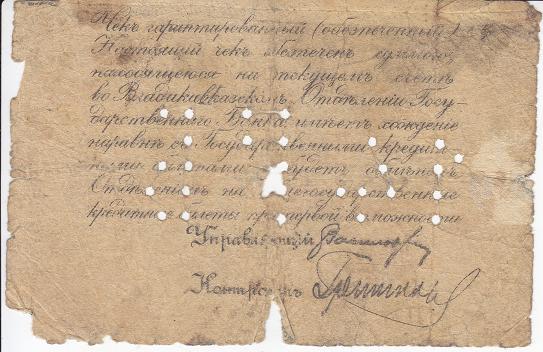 Чекъ гарантированный (обезпеченный)
Настоящий чекъ обезпеченъ суммою,
находящеюся на текущемъ счетѣ
во Владикавказскомъ Отдѣленіи Госу-
дарственнаго Банка имѣетъ хожденіе
наравнѣ съ Государственными кредит-
ными билетами будетъ обмѣненъ
Отдѣленіемъ на Государственные
кредитные билеты при первой возможности
Управляющій
Контролеръ